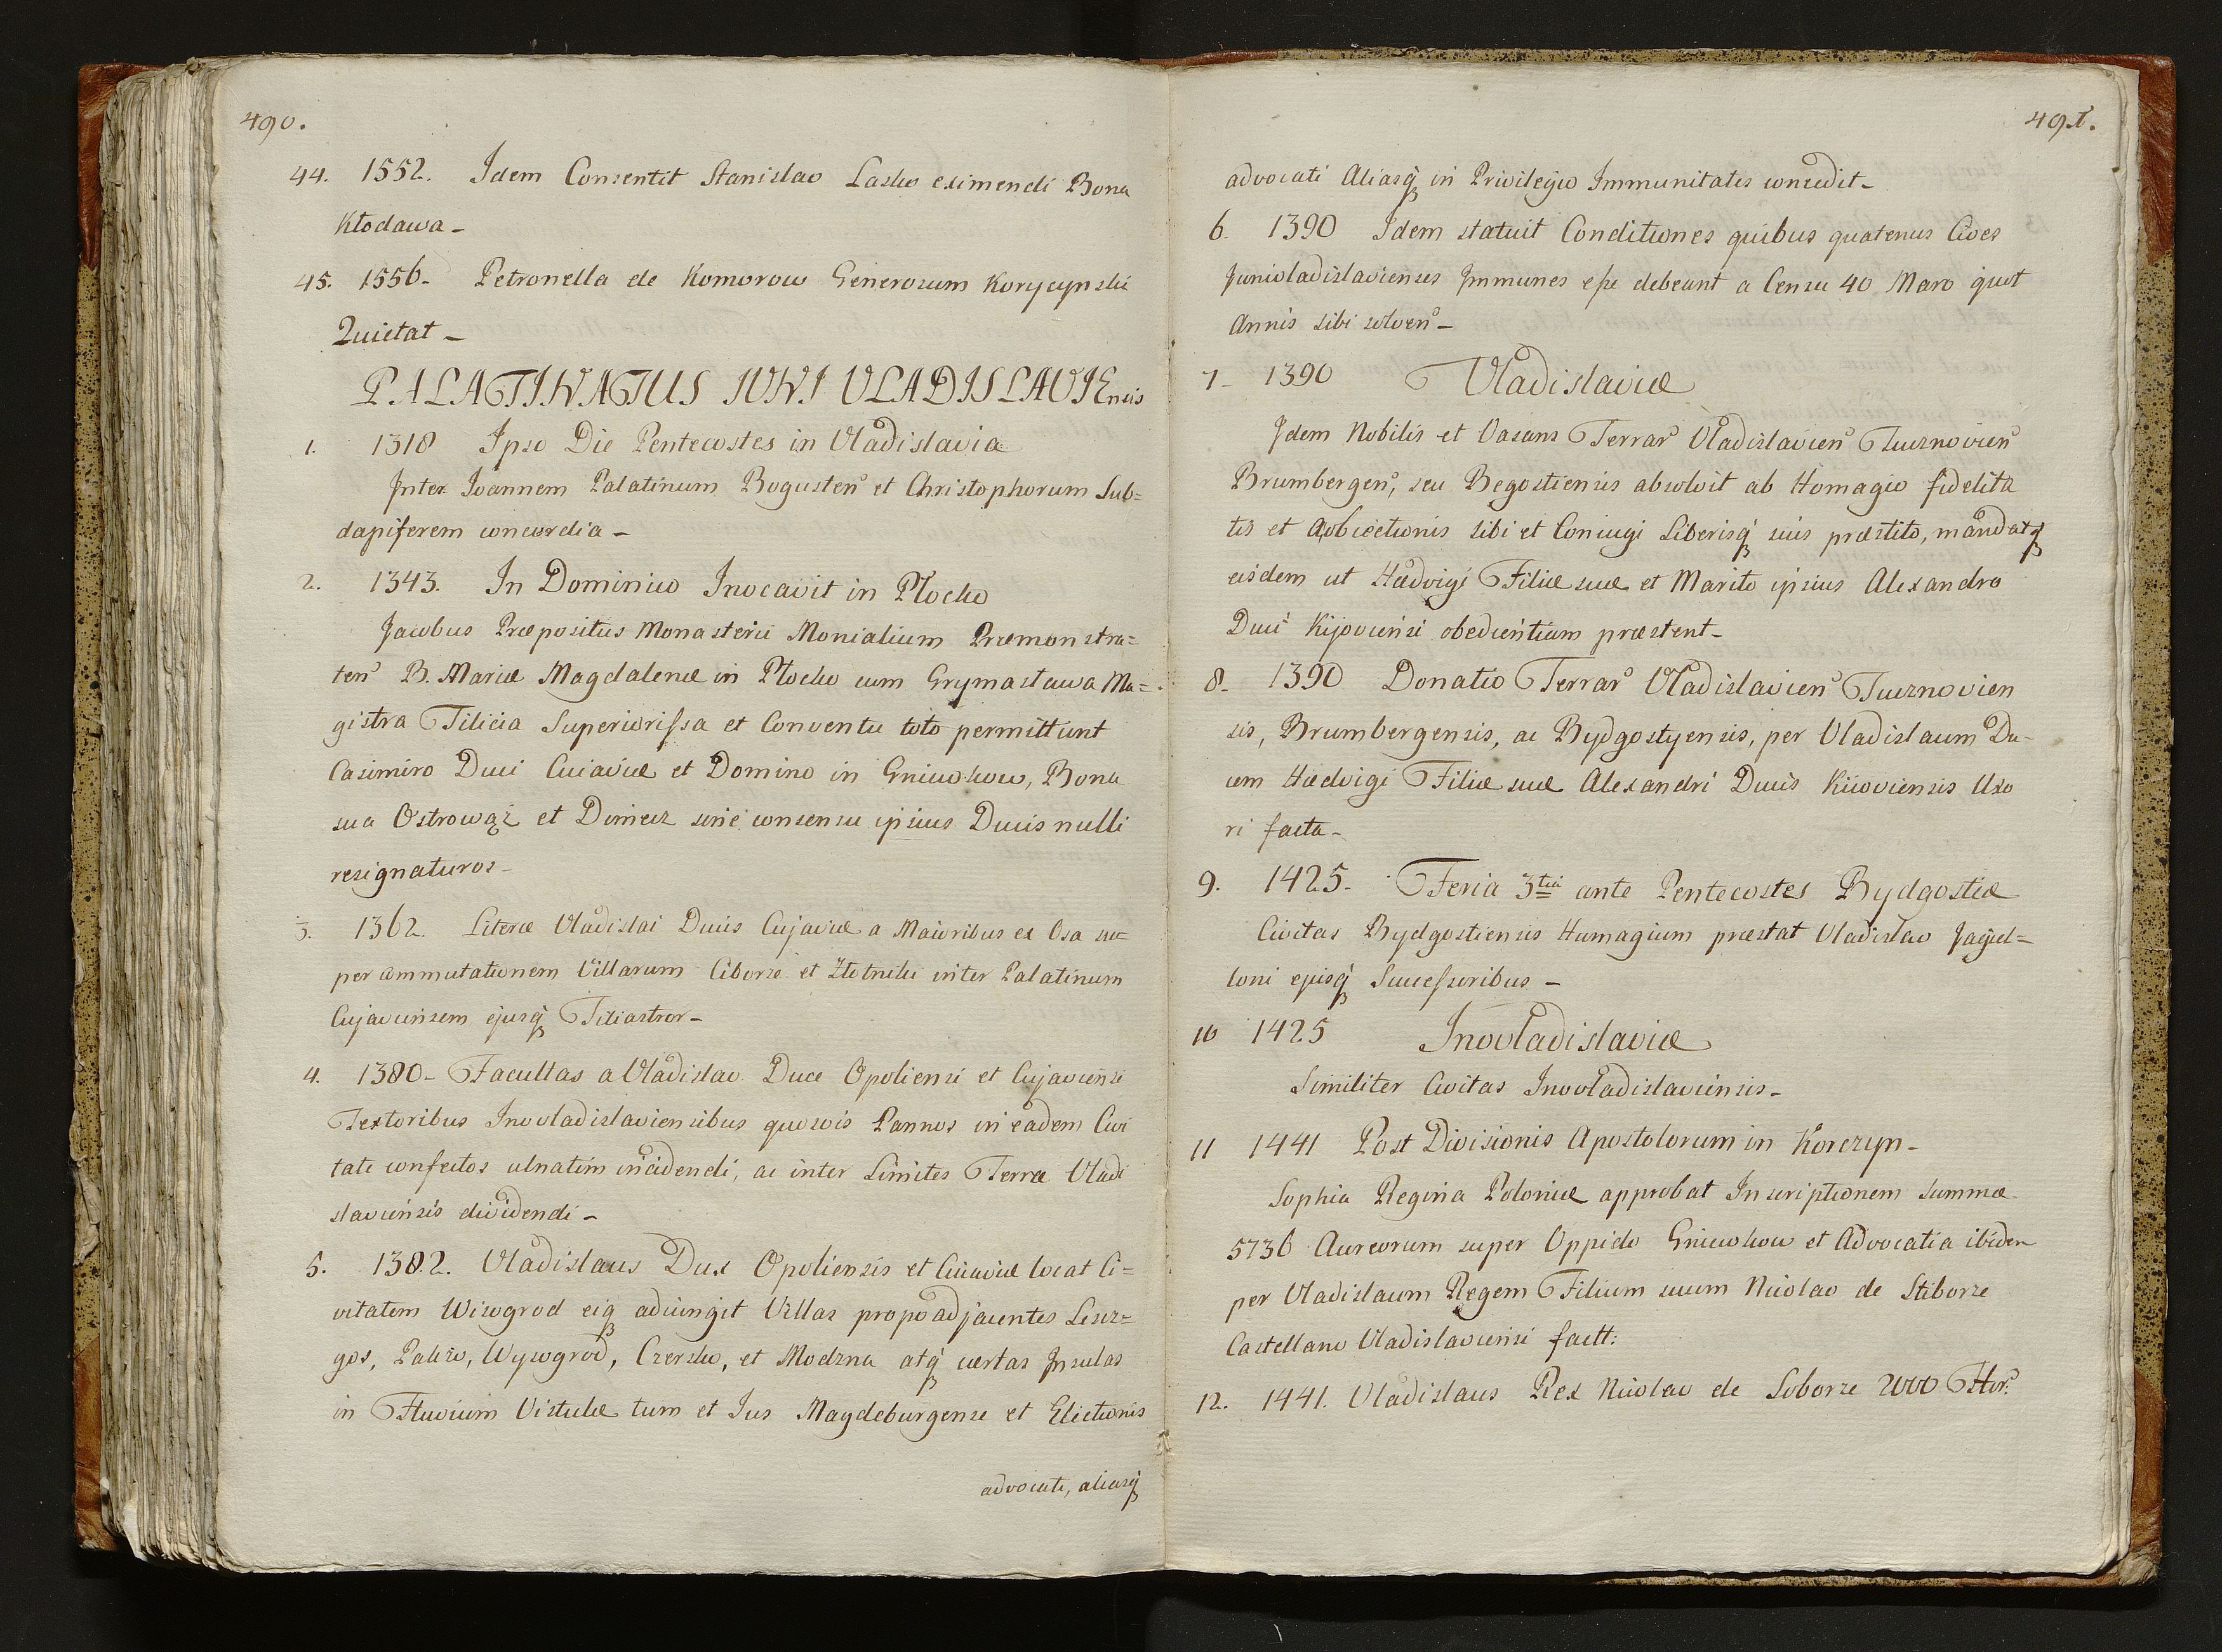 490.
44. 1552. Idem Consentit Stanislao Lasko eximendi Bona
Kłodawa -
45. 1556 - Petronella de Komorow Generosum Korycynski
Quietat -
PALATINATUS IUNI VLADISLAVIEnsis
1. 1318 Ipso Die Pentecostes in Vladislavia
Inter Ioannem Palatinum Bogusten et Christophorum Sub=
dapiferem concordia -
2. 1343. In Dominico Inocavit in Plocko
Jacobus Præpositus Monasterii Monialium Præmonstra=
ten B. Mariæ Magdalenæ in Plocko cum Grymasława Ma=
gistra Tilicia Superiorissa et Conventu toto permittunt
Casimiro Duci Cuiaviæ et Domino in Gniwokow, Bona
sua Ostrowąż et Dzimierz sine consensu ipsius Ducis nulli
resignaturos -
3. 1362. Literæ Vladislai Ducis Cujaviæ a Maioribus ex Osa su=
per commutationem Villarum Ciborze et Złotniki inter Palatinum
Cujaviensem ejusq Filiastror -
4. 1380 - Facultas a Vladislao Duce Opoliensi et Cujaviensi
Textoribus Inovladislaviensibus quosvis Pannos in eadem Civi
tate confectos ulnatim incidendi, ac inter Limites Terræ Vladi
slaviensis dividendi -
5. 1382. Vladislaus Dux Opoliensis et Cuiaviæ locat Ci=
vitatem Wisogrod eiq adiungit Villas propo adjacentes Lesz=
gos, Palizo, Wysogrod, Czersko, et Modzna atq certas Insulas
in Fluvium Vistulæ tum et Ius Magdeburgense et Electionis
advocati, aliasq
491.
advocati Aliasq in Privilegio Immunitates concedit -
6. 1390 Idem statuit Conditiones quibus quatenus Cives
Junivladislavienses Immunes esse debeant a Censu 40 Marc quot
Annis sibi solven -
7 - 1390 Vladislaviæ
Idem Nobilis et Vasans Terrar Vladislavien Tucznovien
Brumbergen, seu Begostiensis absolvit ab Homagio fidelita
tis et Aobiectionis sibi et Coniugi Liberisq suis præstito, mandatq
eisdem ut Hædvigi Filiæ suæ et Marito ipsius Alexandro
Duci Kijoviensi obedientiam præstent -
8 - 1390 Donatio Terrar Vladislavien Tucznovien
sis, Brumbergensis, ac Bydgostyensis, per Vladislaum Du-
cem Hædvigi Filiæ suæ Alexandri Ducis Kiioviensis Uxo
ri facta -
9. 1425 - Feria 3tia ante Pentecostes Bydgostiæ
Civitas Bydgostiensis Humagium præstat Vladislao Jagiel=
loni ejusq Successoribus -
10 1425 Inovladislaviæ
Similiter Civitas Inovladislaviensis -
11 1441 Post Divisionis Apostolorum in Korczyn -
Sophia Regina Poloniæ approbat Inscriptionem Summæ
5736 Aureorum super Oppido Gniwokow et Advocatia ibidem
per Vladislaum Regem Filium suum Nicolao de Stiborze
Castellano Vladislaviensi fact:
12. 1441. Vladislaus Rex Nicolao de Soborze 2000 Flor.